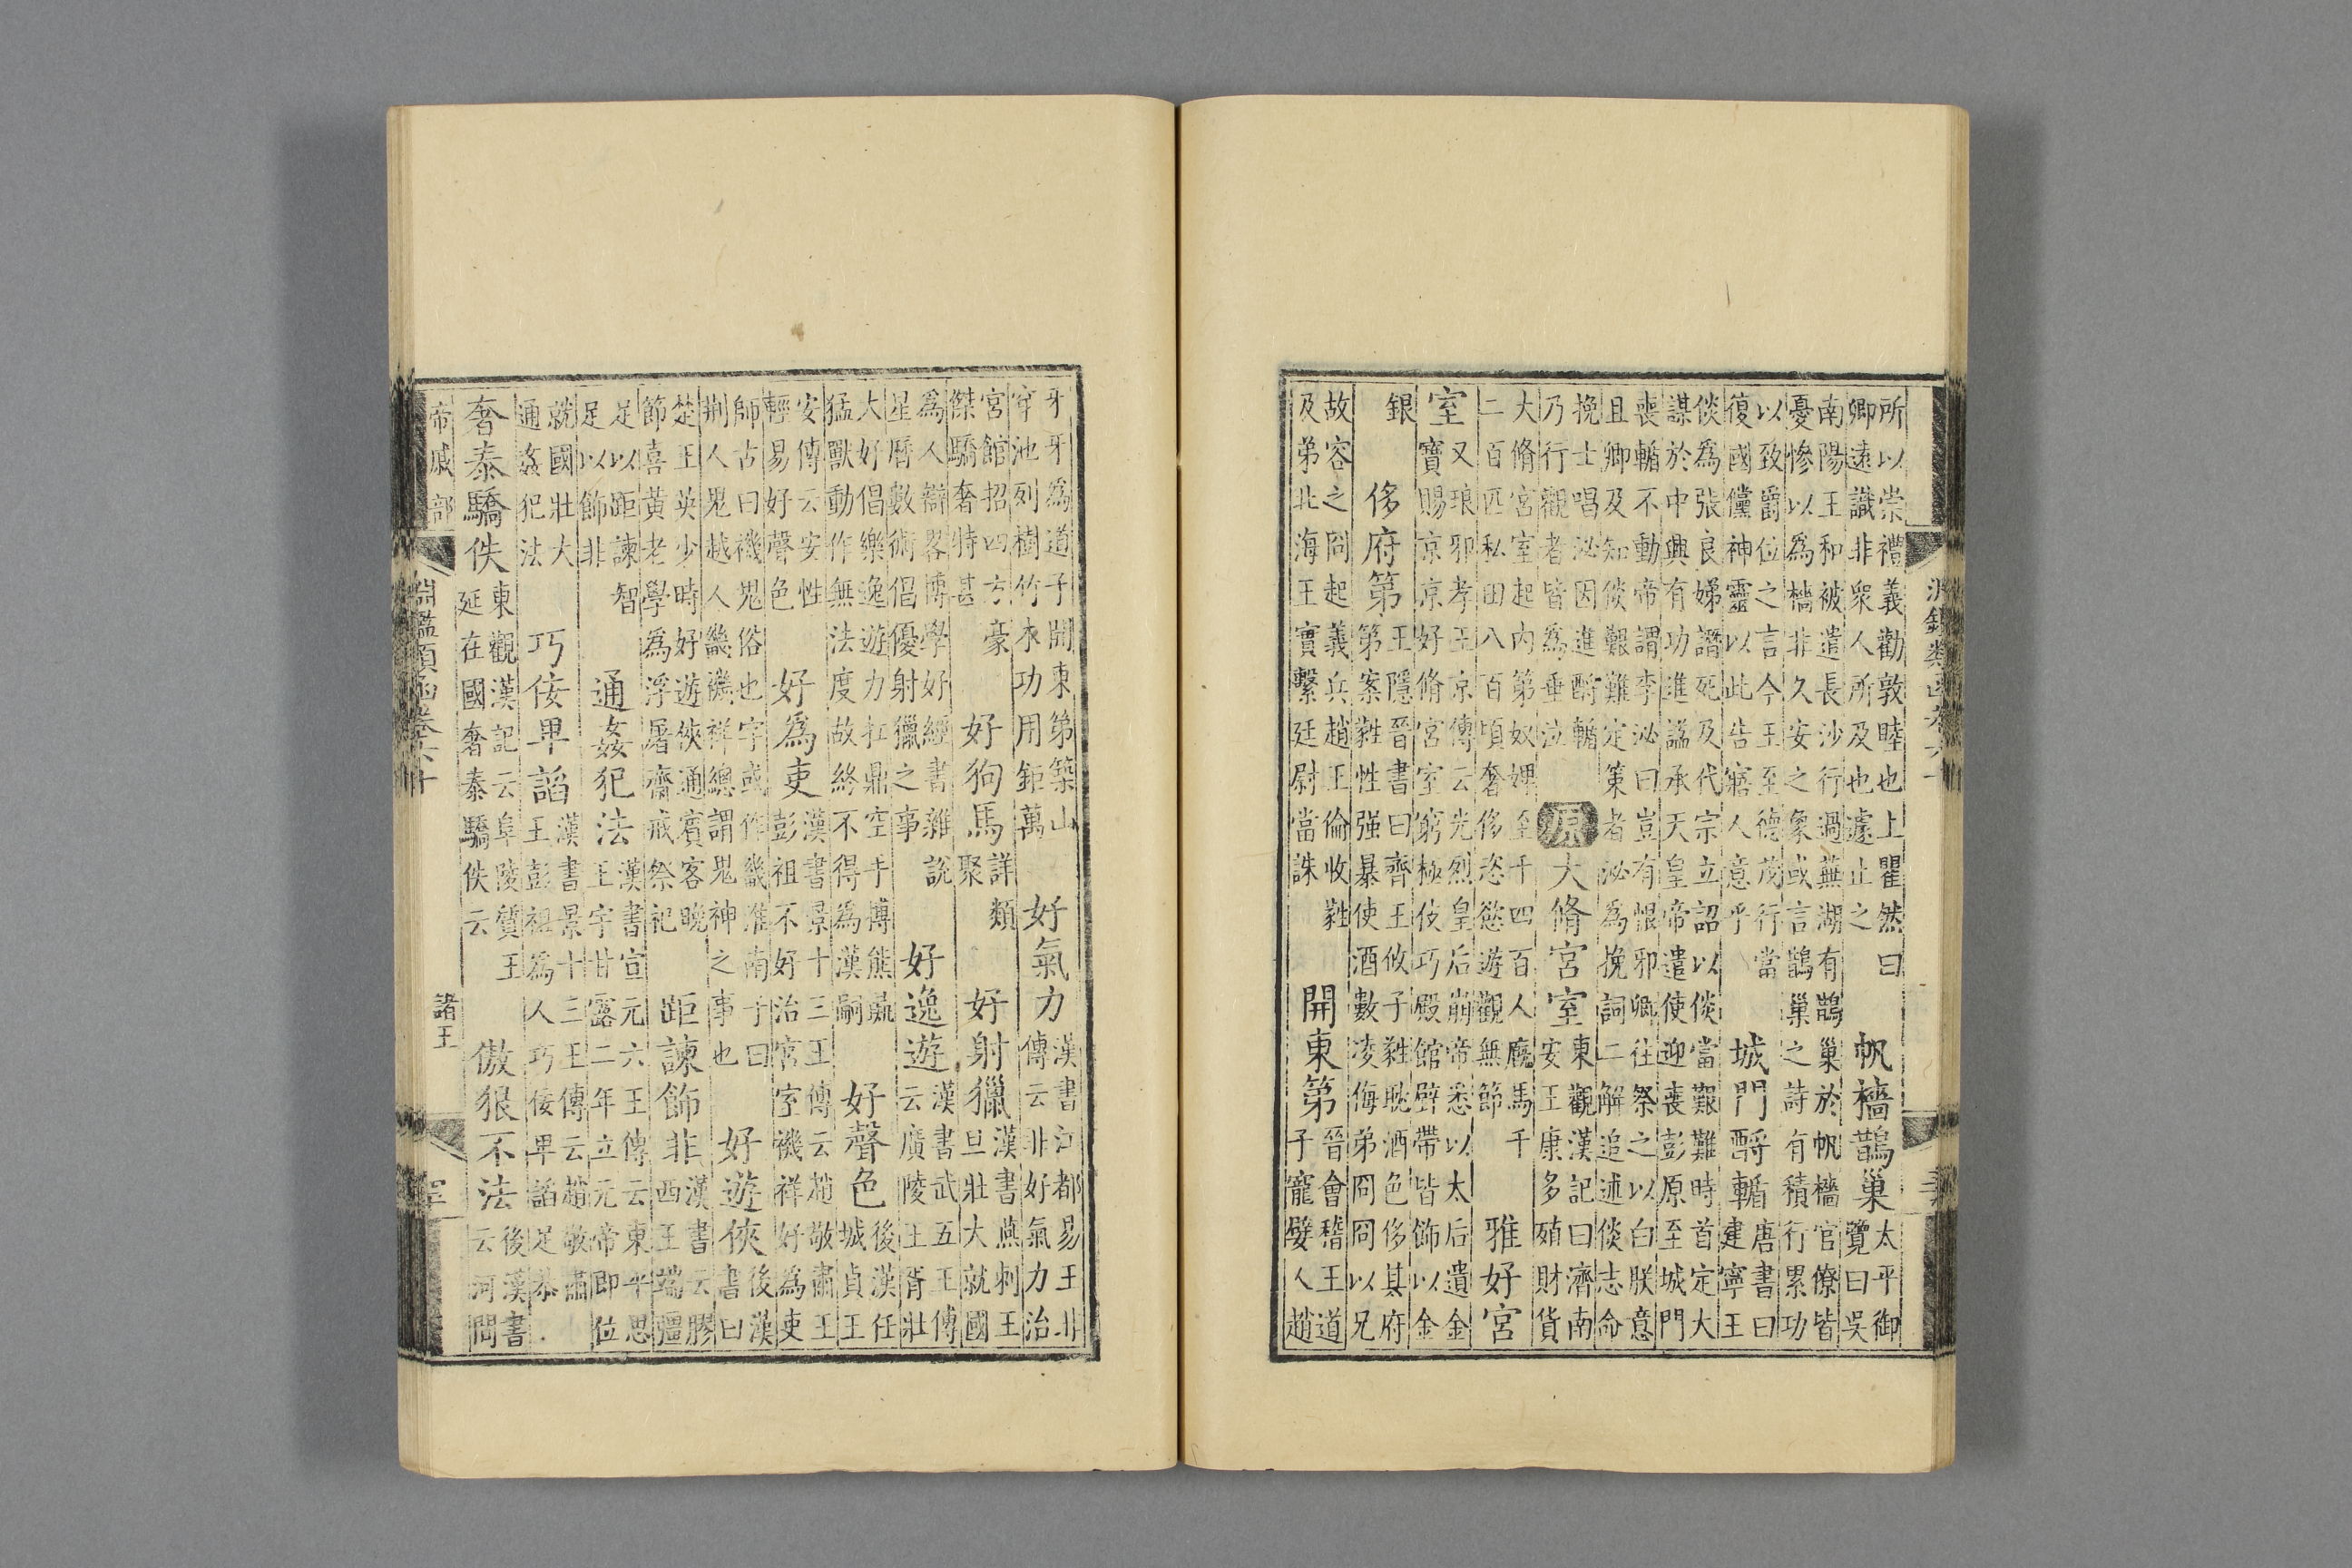 所以崇禮義勸敦睦也上瞿然曰
卿遠識非衆人所及也遽止之
帆檣鵲巢
太平御
覽曰吳
南陽王和被遣長沙行過蕪湖有鵲巢於帆檣官僚皆
憂慘以為檣非久安之象或言鵲巢之詩有積行累功
以致爵位之言今王至德茂行當
復國儻神靈以此告寤人意乎
城門酹輴
唐書曰
建寧王
倓為張良娣譖死及代宗立詔以倓當艱難時首定大
謀於中興有功進諡承天皇帝遣使迎喪彭原至城門
喪輴不動帝謂李泌曰豈有恨邪卿往祭之以白朕意
且卿及知倓艱難定策者泌為挽詞二解追述倓志命
挽士唱泌因進酹輴
乃行觀者皆為垂泣
原
大脩宮室
東觀漢記曰濟南
安王康多殖財貨
大脩宮室起内第奴婢至千四百人廄馬千
二百匹私田八百頃奢侈恣慾遊觀無節
雅好宮
室
又琅邪孝王京傳云光烈皇后崩帝悉以太后遺金
寶賜京京好脩宮室窮極伎巧殿館壁帶皆飾以金
銀
侈府第
王隱晉書曰齊王攸子蕤耽酒色侈其府
第案蕤性强暴使酒數凌侮弟冏冏以兄
故容之冏起義兵趙王倫收蕤
及弟北海王實繫廷尉當誅
開東第
晉會稽王道
子寵嬖人趙
牙牙為道子開東第築山
穿池列樹竹木功用鉅萬
好氣力
漢書江都易王非
傳云非好氣力治
宮館招四方豪
傑驕奢特甚
好狗馬
詳類
聚
好射獵
漢書燕刺王
旦壯大就國
為人辯畧博學好經書雜說
星曆數術倡優射獵之事
好逸遊
漢書武五王傳
云廣陵王胥壯
大好倡樂逸遊力扛鼎空手博熊彘
猛獸動作無法度故終不得為漢嗣
好聲色
後漢任
城貞王
安傳云安性
輕易好聲色
好為吏
漢書景十三王傳云趙敬肅王
彭祖不好治宮室禨祥好為吏
師古曰禨鬼俗也字或作畿淮南子曰
荆人鬼越人畿禨祥總謂鬼神之事也
好遊俠
後漢
書曰
楚王英少時好遊俠通賓客晚
節喜黄老學為浮屠齋戒祭祀
距諫飾非
漢書云膠
西王端彊
足以距諫智
足以飾非
通姦犯法
漢書宣元六王傳云東平思
王宇甘露二年立元帝即位
就國壯大
通姦犯法
巧佞卑諂
漢書景十三王傳云趙敬肅
王彭祖為人巧佞卑諂足恭
奢泰驕佚
東觀漢記云阜陵質王
延在國奢泰驕佚云
傲狠不法
後漢書
云河間
帝戚部
淵鑑類函卷六十
諸王